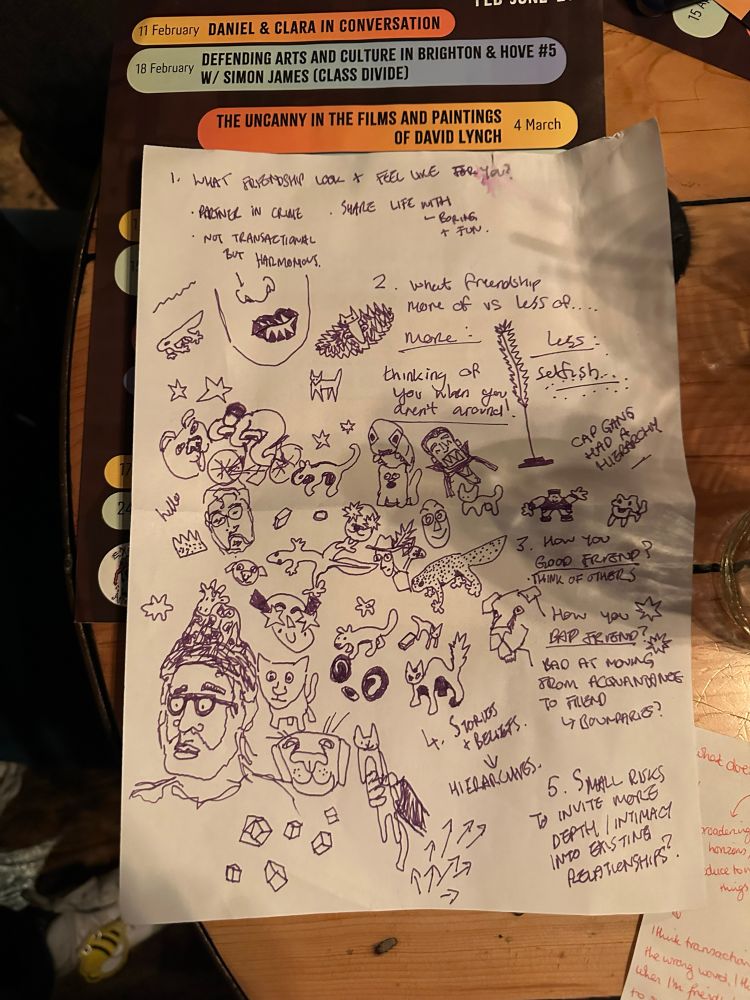 FEB-JUNE 2
11 February DANIEL & CLARA IN CONVERSATION
15 A
18 February DEFENDING ARTS AND CULTURE IN BRIGHTON & HOVE #5
W/ SIMON JAMES (CLASS DIVIDE)
THE UNCANNY IN THE FILMS AND PAINTINGS
OF DAVID LYNCH 4 March
1. WHAT FRIENDSHIP LOOK + FEEL LIKE FOR YOU?
· PARTNER IN CRIME
· SHARE LIFE WITH
- BORING
+ FUN.
· NOT TRANSACTIONAL
BUT HARMONIOUS.
2. What friendship
more of vs less of....
more:
thinking of
you when you
aren't around!
Less:
selfish...
CAP GANG
HAD A
HIERARCHY
hello
17
24
3. HOW YOU
GOOD FRIEND?
· THINK OF OTHERS
HOW YOU
BAD FRIEND?
BAD AT MOVING
FROM ACQUANTANCE
TO FRIEND
↳ BOUNDARIES?
4. STORIES
+ BELIEFS.
↓
HIERARCHIES.
5. SMALL RISKS
TO INVITE MORE
DEPTH / INTIMACY
INTO EXISTING
RELATIONSHIPS?
what doe
roadening
horizons
duce to n
things
I think transaction
the wrong word, I th
when I'm friend
to